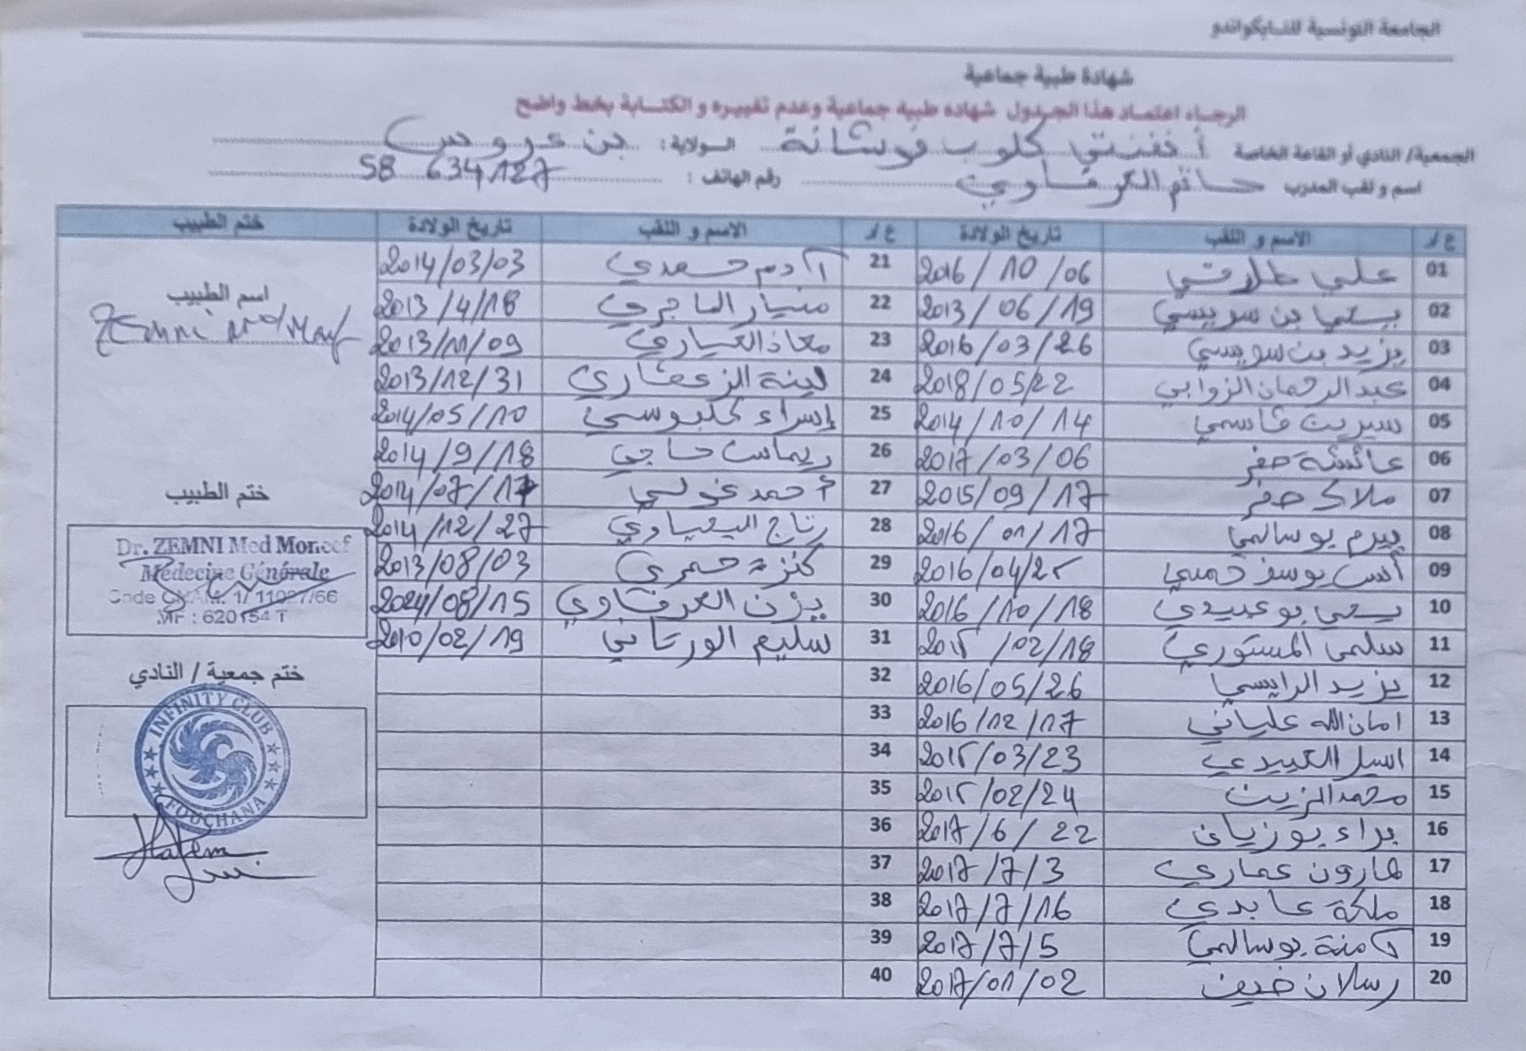 الجامعة التونسية للتايكواندو
شهادة طبية جماعية
الرجاء اعتماد هذا الجدول شهاده طبية جماعية وعدم تغييره و الكتابة بخط واضح
الجمعية/ النادي أو القاعة الخاصة أنفنتي كلوب فوشانة الولاية: بن عروس
اسم و لقب المدرب حاتم العرفاوي رقم الهاتف: 58 634127
ع/د الاسم و اللقب تاريخ الولادة ع/د الاسم و اللقب تاريخ الولادة ختم الطبيب
01 علي طلارقي 2016/10/06 21 آدم حمدي 2014/03/03
02 يحي بن سويسي 2013/06/19 22 منيار الماجري 2013/4/18
03 يزيد بن سويسي 2016/03/26 23 معاذ العياري 2013/11/09
04 عبد الرحمان الزوابي 2018/05/22 24 لينة الزعفاري 2013/12/31
05 سيرين قاسمي 2014/10/14 25 إسراء كلبوسي 2014/05/10
06 عائشة صفر 2017/03/06 26 ريماس حاجي 2014/9/18
07 ملاك صفر 2015/09/17 27 أحمد غولي 2014/07/17
08 بيرم بوسالمي 2016/01/17 28 رتاج اليحياوي 2014/12/27
09 أنس يوسف خميري 2016/04/25 29 كنزة حمري 2013/08/03
10 يحي بوعبيدي 2016/10/18 30 يزن العرفاوي 2024/08/15
11 سلمى المستوري 2015/02/18 31 سليم الورتاني 2010/02/19
12 يزيد الرايسي 2016/05/26 32
13 امان الله علياني 2016/12/17 33
14 اسيل العبيدي 2015/03/23 34
15 محمد الزين 2015/02/24 35
16 براء بوزيان 2017/6/22 36
17 هارون عماري 2017/7/3 37
18 ملكة عابدي 2017/7/16 38
19 آمنة بوسالمي 2017/7/5 39
20 رسلان ضيف 2017/01/02 40
اسم الطبيب
Zemni Med Moncef
ختم الطبيب
Dr. ZEMNI Med Moncef
Médecine Générale
Code CNAM: 1/11027/66
MF : 620154 T
ختم جمعية / النادي
INFINITY CLUB
FOUCHANA
Hatem